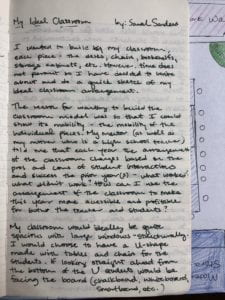 My Ideal Classroom by: Sarah Sanders
I wanted to build my classroom,
each piece - the desks, chairs, bookshelfs,
storage cabinets, etc. structure - time does
not permit so I have decided to write
about and do a quick sketch of my
ideal classroom arrangement.
The reason for wanting to build the
classroom model was so that I could
show its mobility - the mobility of the
individual pieces. My mentor (as well as
my mother who is a high school teacher)
told me that each year the arrangement
of the classroom changes based on the
pros and cons of student interactions
and success the prior year(s) - what worked?
what didn't work? How can I use the
arrangement of the classroom to make
this year more accessible and profitable
for both the teacher and students?
My classroom would ideally be quite
specific with large windows structurally.
I would choose to have a U-shape
made with tables and chairs for the
students. If looking straight ahead from
the bottom of the U students would be
facing the board (chalkboard, whiteboard,
smartboard, etc.)